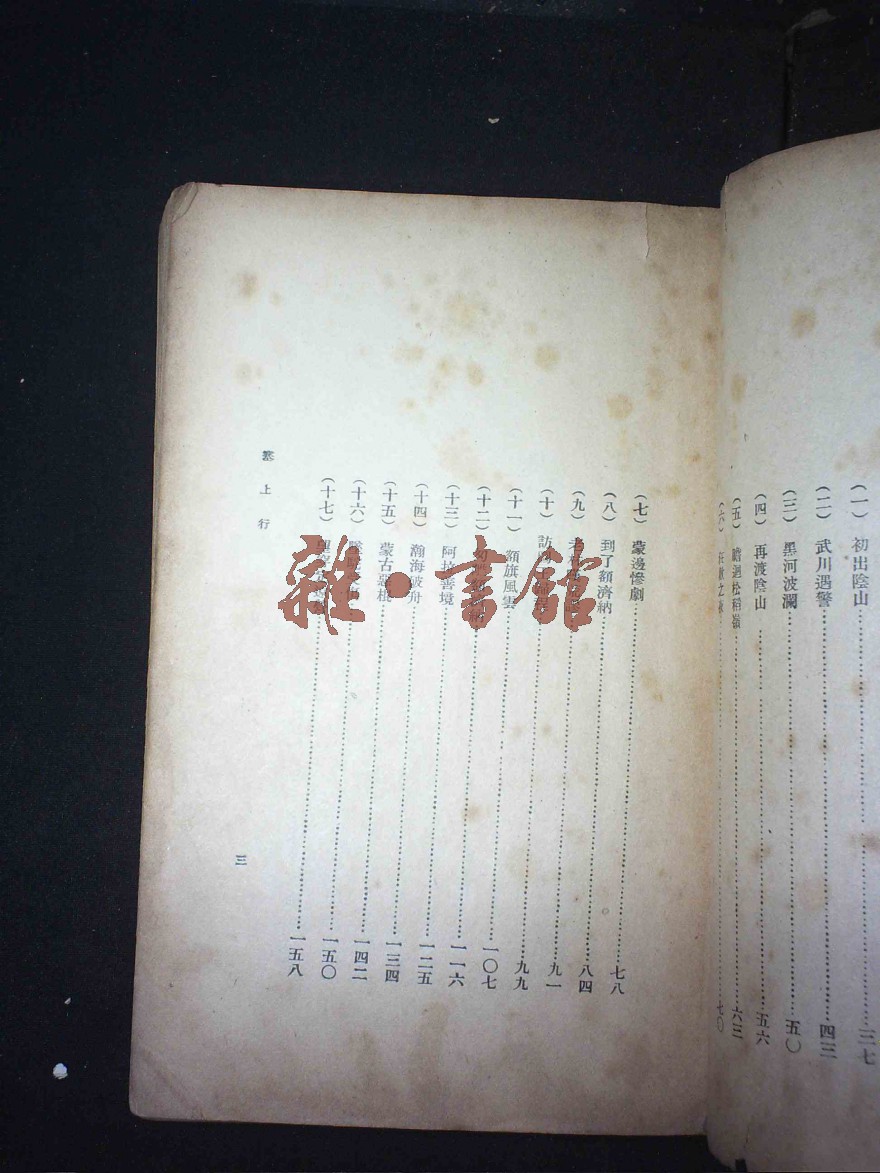 (一) 初出陰山……三七
(二) 武川遇警……四三
(三) 黑河波瀾……五〇
(四) 再渡陰山……五六
(五) 迴松稻嶺……六三
(六) 之……七〇
(七) 蒙邊慘劇……七八
(八) 到了額濟納……八四
(九) 老……九一
(十) 訪……九九
(十一) 額旗風雲……一〇七
(十二) ……一一六
(十三) 阿拉善境……一二五
(十四) 瀚海破舟……一三四
(十五) 蒙古根……一四二
(十六) ……一五〇
(十七) ……一五八
塞上行
三
雜·書館